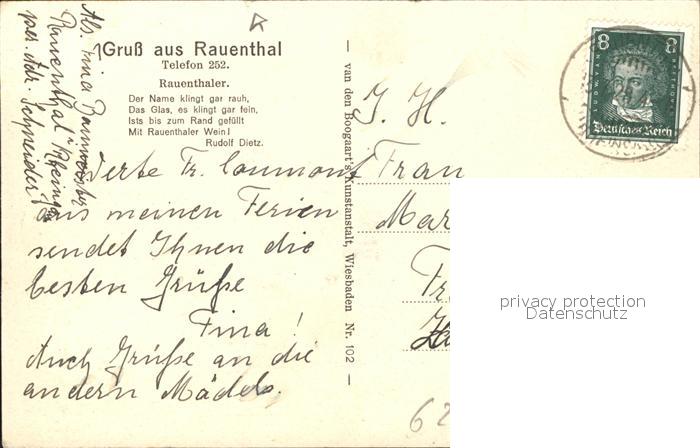 Gruß aus Rauenthal
Telefon 252.
Rauenthaler.
Der Name klingt gar rauh,
Das Glas, es klingt gar fein,
Ists bis zum Rand gefüllt
Mit Rauenthaler Wein!
Rudolf Dietz.
Abs. Fina
Rauenthal i/Rheingau
per. Adr. Schneider
Werte Fr. Caumont
aus meinen Ferien
sendet Ihnen die
besten Grüße
Fina!
Auch Grüße an die
andern Mädels.
— van den Boogaart's Kunstanstalt, Wiesbaden Nr. 102 —
8 8
LUDW. VAN BEETHOVEN
Deutsches Reich
I. H.
Frau
Mar
Fr
62
privacy protection
Datenschutz